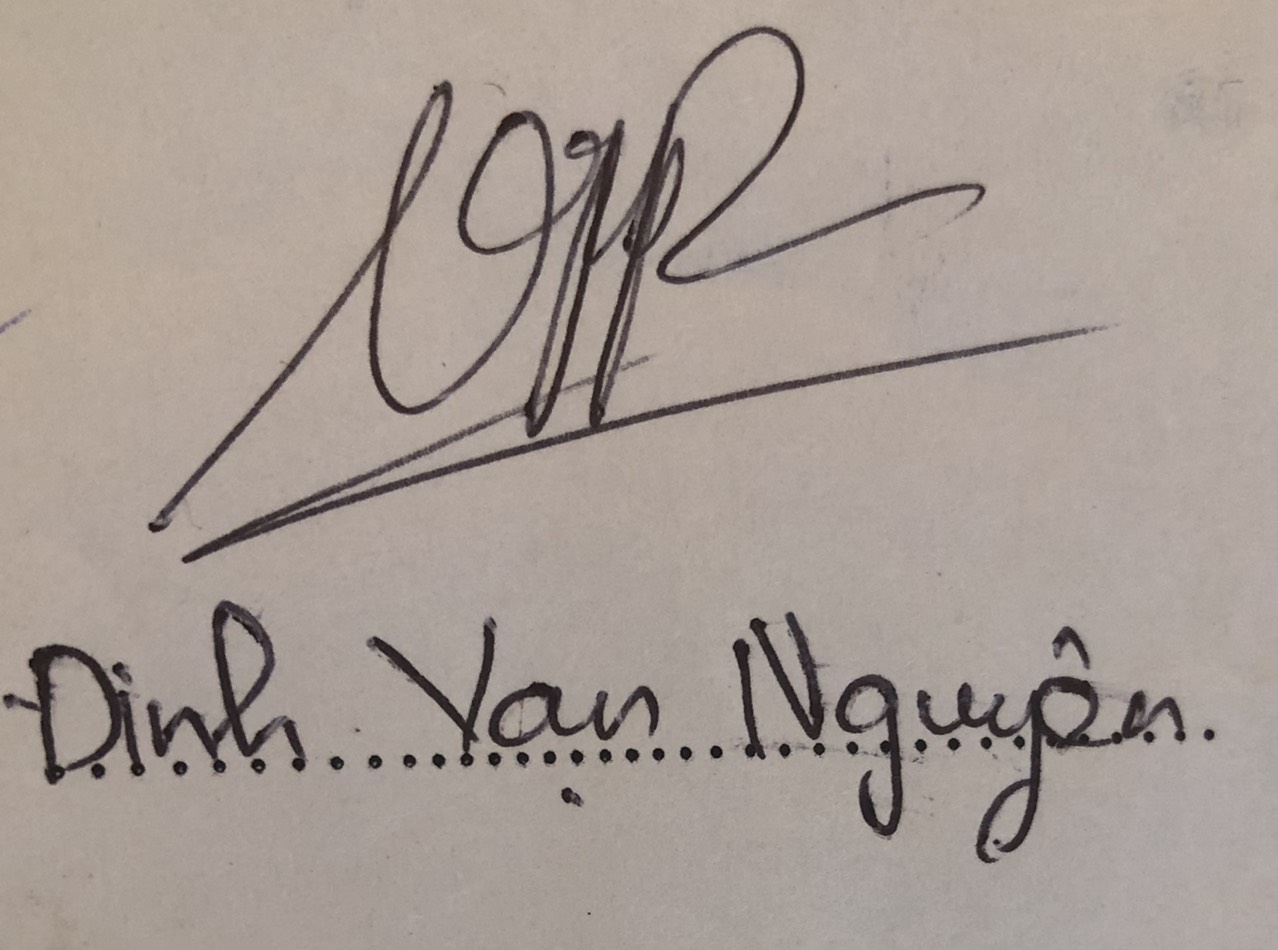 Đinh Vạn Nguyên